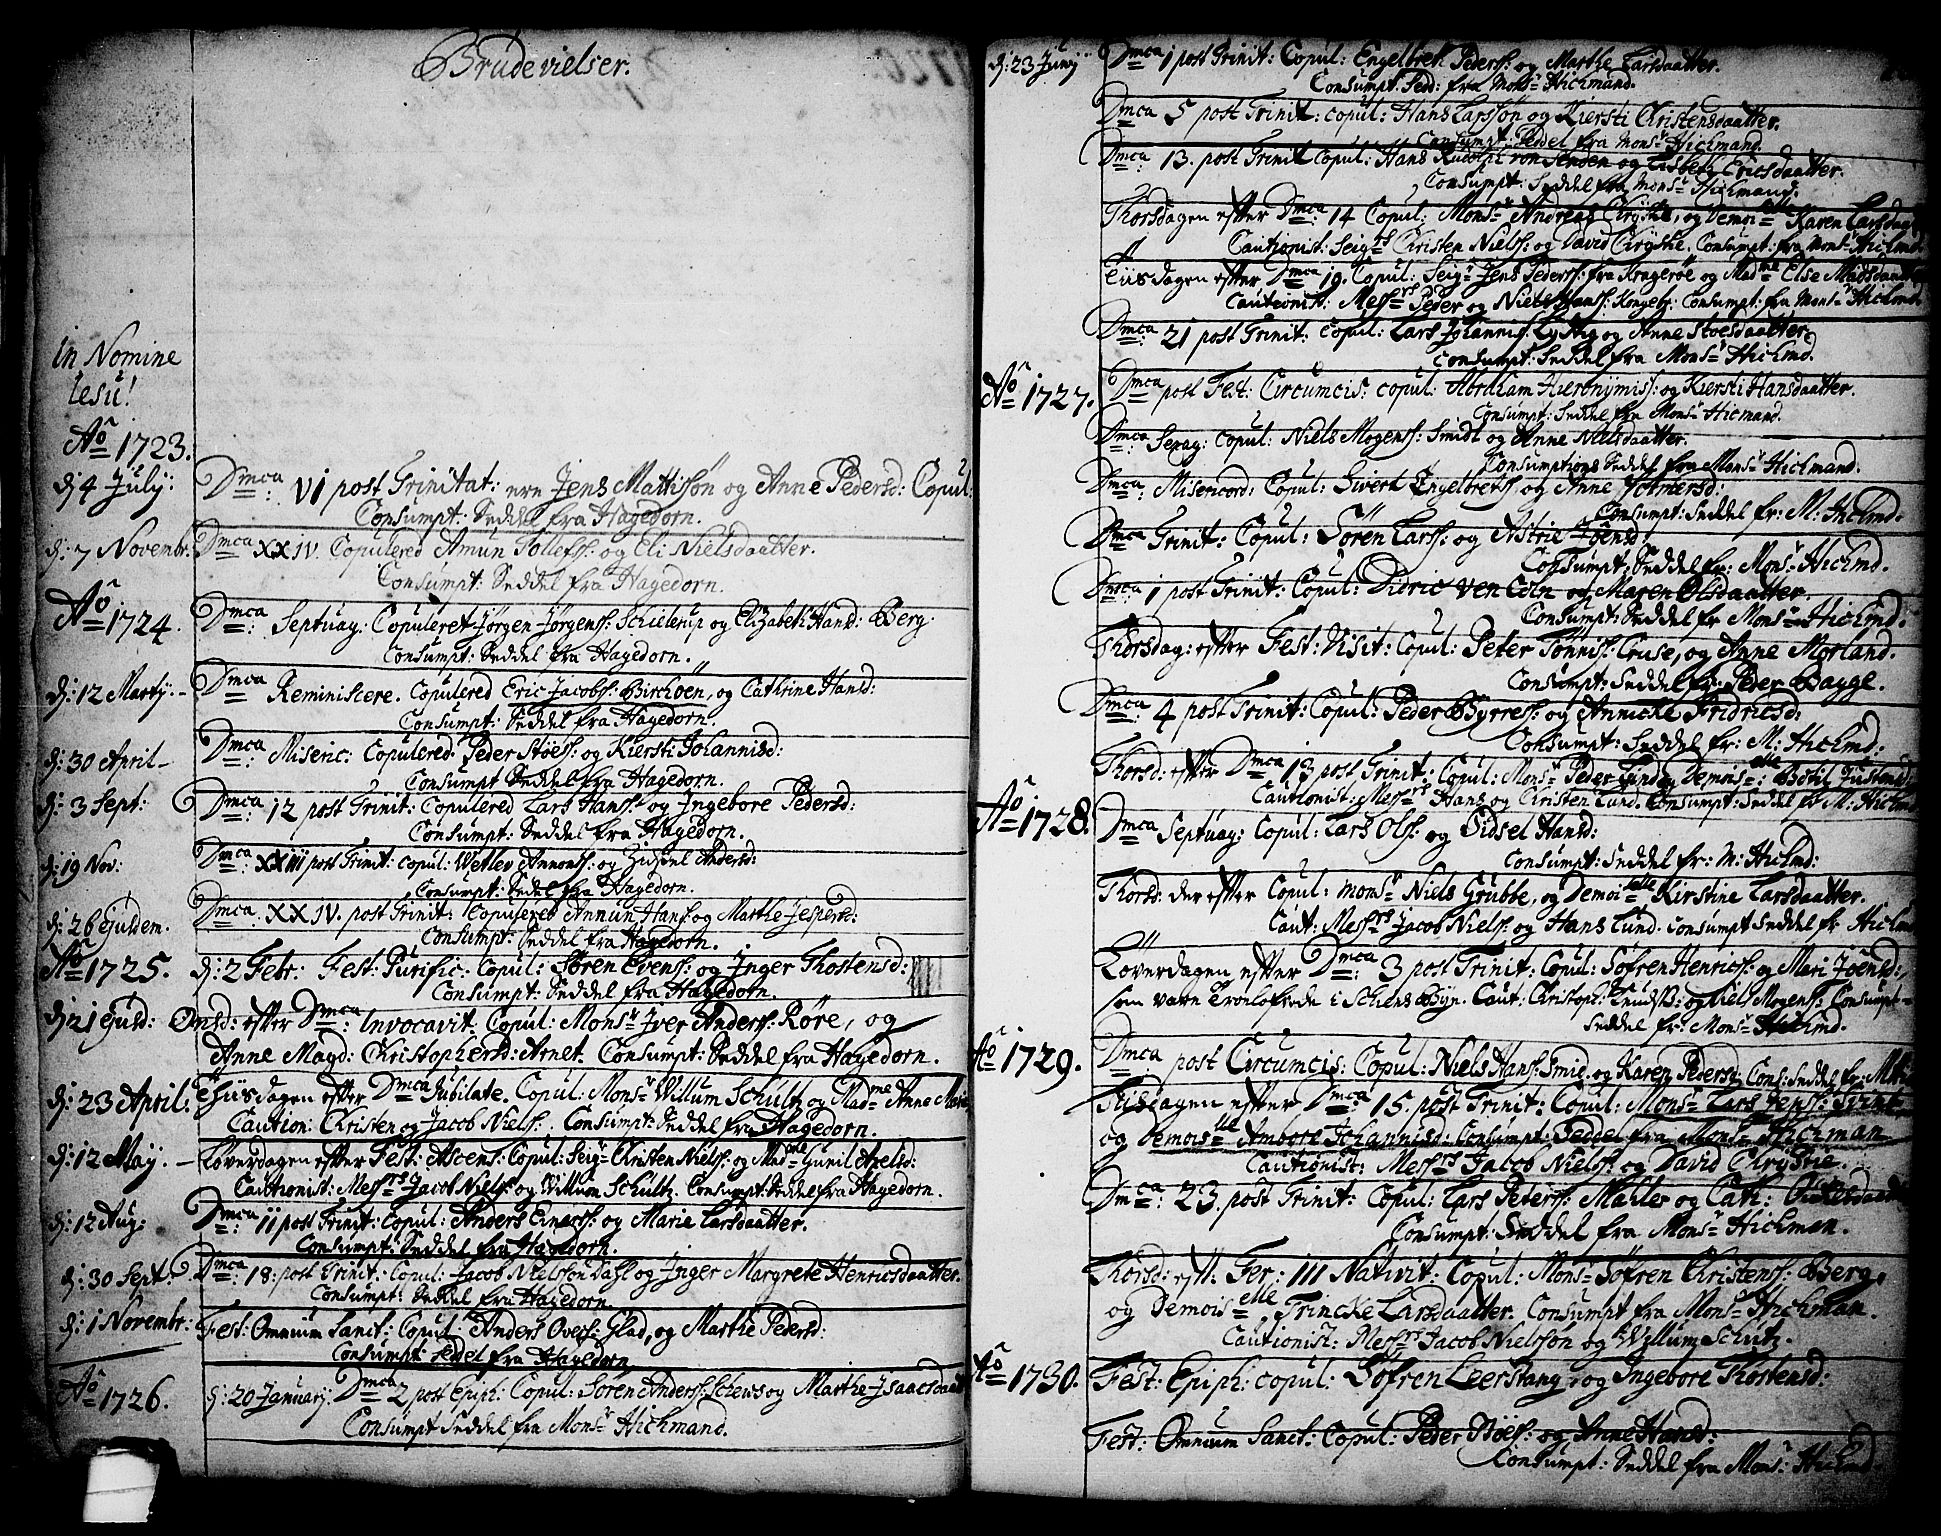 Brudevielser.
in Nomine
Iesu!
Aō 1723.
d: 4 July: Dmca: VI post Trinitat: Jens Mattisön og Anne Pedersd: Copul:
Consumpt: Seddel fra Hagedorn.
d: 7 Novembr: Dmca XXIV. Copulered Amun Tollefs: og Eli Nielsdaatter.
Consumpt: Seddel fra Hagedorn.
Aō 1724. Dmca: Septuag: Copuleret Jörgen Jörgens: Schielerup og Elizabeth Hansd: Berg.
Consumpt: Seddel fra Hagedorn.
d: 12 Martij. Dmca Reminiscere. Copulered Eric Jacobs: Birchöen, og Cathrine Hansd:
Consumpt: Seddel fra Hagedorn.
d: 30 April Dmca: Miseric: Copulered Peder Stöes: og Kiersti Johannisd:
Consumpt Seddel fra Hagedorn.
d: 3 Sept: Dmca: 12 post Trinit: Copulered Lars Hans: og Ingebore Pedersd:
Consumpt: Seddel fra Hagedorn.
d: 19 Nov: Dmca: XXIII post Trinit: copul: Wetlev Amonts: og Zidsel Andersd:
Consumpt: Sedel fra Hagedorn.
d: 26 ejusdem. Dmca. XXIV. post Trinit: Copulered Anmun Hans: og Marthe Jespersd:
Consumpt: Seddel fra Hagedorn.
Aō 1725. d: 2 Febr: Fest: Purific: Copul: Sören Evens: og Inger Thostensd:
Consumpt: Seddel fra Hagedorn.
d: 21 ejusd: Onsd: efter Dmca: Invocavit. Copul: Monsr Iver Anders: Röre, og
Anne Magd: Christophersd: Arnet. Consumpt: Seddel fra Hagedorn.
d: 23 April: Tiisdagen efter Dmca Jubilate. Copul: Monsr Willum Schultz og Madme Anne Marie
Caution: Christen og Jacob Niels: Consumpt: Seddel fra Hagedorn.
d: 12 May. Löverdagen efter Fest: Ascens: Copul: Seigr Christen Niels: og Madlle Gunil Axelsd:
Cautionist: Messrs Jacob Niels: og Willum Schultz. Consumpt: Seddel fra Hagedorn.
d: 12 Aug: Dmca: 11 post Trinit: Copul: Anders Einers: og Marie Larsdaatter.
Consumpt: Seddel fra Hagedorn.
d: 30 Sept: Dmca: 18: post Trinit: Copul: Jacob Nielssön Dahl og Inger Margrete Henricsdaatter.
Consumpt: Seddel fra Hagedorn.
d: 1 Novembr: Fest: Omnium Sanct: Copul: Anders Overs: Glad, og Marthe Pedersd:
Consumpt: Seddel fra Hagedorn
Aō 1726. d: 20 Januarij: Dmca 2 post Epiph: Copul: Sören Anders: Scheus og Marthe Isaacsdaatt
Consumpt Seddel fra Monsr Hichmand.
d: 23 Junij Dmca 1 post Trinit: Copul: Engelbret Peders: og Marthe Larsdaatter.
Consumpt: Sedd: fra Monsr Hichmand.
Dmca 5 post Trinit: copul: Hans Larssön og Kiersti Christensdaatter.
Consumpt: Seddel fra Monsr Hichmand.
Dmca: 13. post Trinit Copul: Hans Rudolph von Senden og Lisbeth Ericsdaatter.
Consumpt: Seddel fra Monsr Hichmand.
Thorsdagen efter Dmca: 14 Copul: Monsr Andreas Chrystie, og Demoislle Karen Larsdaatt
Cautionist: Seigrs Christen Niels: og David Chrystie. Consumpt: fra Monsr Hichmd
Tiisdagen efter Dmca 19. Copul: Seigr Jens Peders: fra Krageröe og Madme Else Madsdaatter
Cautionist: Messrs Peder og Niels Hans: Kongebr: Consumpt: fra Monsr Hichmd.
Dmca: 21 post Trinit: Copul: Lars Johannis: Lystig og Anne Stoesdaatter.
Consumpt: Seddel fra Monsr Hichmd.
Aō 1727. Dmca post Fest: Circumcis: copul: Abraham Hieronymis: og Kiersti Hansdaatter.
Consumpt: Seddel fra Monsr Hicmand.
Dmca Sexag: Copul: Niels Mogens: Smidt og Anne Nielsdaatter.
Consumptions Seddel fra Monsr Hichmand.
Dmca: Misericord: Copul: Sivert Engelbrets: og Anne
Consumpt: Seddel fr: M: Hichmd.
Dmca Trinit: Copul: Sören Lars: og Astrie Joensd
Consumpt: Seddel fr: Monsr Hichmd.
Dmca: 1 post Trinit: Copul: Didric ven Cöln og Maren Olsdaatter.
Consumpt: Seddel fr Monsr Hichmd.
Thorsdag: efter Fest: Visit: Copul: Peter Tönnis: Cruse, og Anne Morland.
Consumpt: Seddel fr: Peder Bagge.
Dmca: 4 post Trinit: Copul: Peder Byrres: og Annicke Fridricsd:
Consumpt: Seddel fr: M: Hichmd:
Thorsd: efter Dmca 13 post Trinit: Copul: Monsr Peder Lund og Demoislle: Bodil
Cautionist: Messrs Hans og Christen Lund. Consumpt: Seddel fr M: Hichmd
Aō 1728. Dmca Septuag: Copul: Lars Ols: og Sidsel Hansd:
Consumpt: Seddel fr: M: Hichmd:
Thorsd: der efter Copul: Monsr Niels Grubbe, og Demoislle Kirstine Larsdaatter.
Caut: Messrs Jacob Niels: og Hans Lund. Consumpt Seddel fr Hichmd
Löverdagen efter Dmca: 3 post Trinit: Copul: Söfren Henrics: og Mari Joensd:,
som varn Trolofvede i Schens Byn. Caut: Christoph: Knuds: og Niels Mogens: Consumpt=
Seddel fr: Monsr Hichmd.
Aō 1729. Dmca: post Circumcis: Copul: Niels Hans: Smie. og Karen Pedersd: Cons: Seddel fr: M:
Tiisdagen efter Dmca 15. post Trinit: Copul: Monsr Lars Jeps:
og Demoislle Ambork Johannisd: Consumpt: Seddel fra Monsr Hichman
Cautionist: Messrs Jacob Niels: og David Chrystie.
Dmca: 23. post Trinit: Copul: Lars Peters: Mahler og Cath:
Consumpt: Seddel fra Monsr Hichman.
Thorsd: eft: Fer: III Nativit: Copul: Monsr Söfren Christens: Berg.
og Demoiselle, Trincke Larsdaatter. Consumpt fra Monsr Hichman.
Cautionist: Messrs Jacob Nielssön og Willum Schultz.
Aō 1730. Fest: Epiph: copul: Söfren Leerstang, og Ingebore Thostensd:
Fest: Omnium Sanct: Copul: Peder Stöes: og Anne Hansd:
Consumpt: Seddel fra Monsr Hichmd.